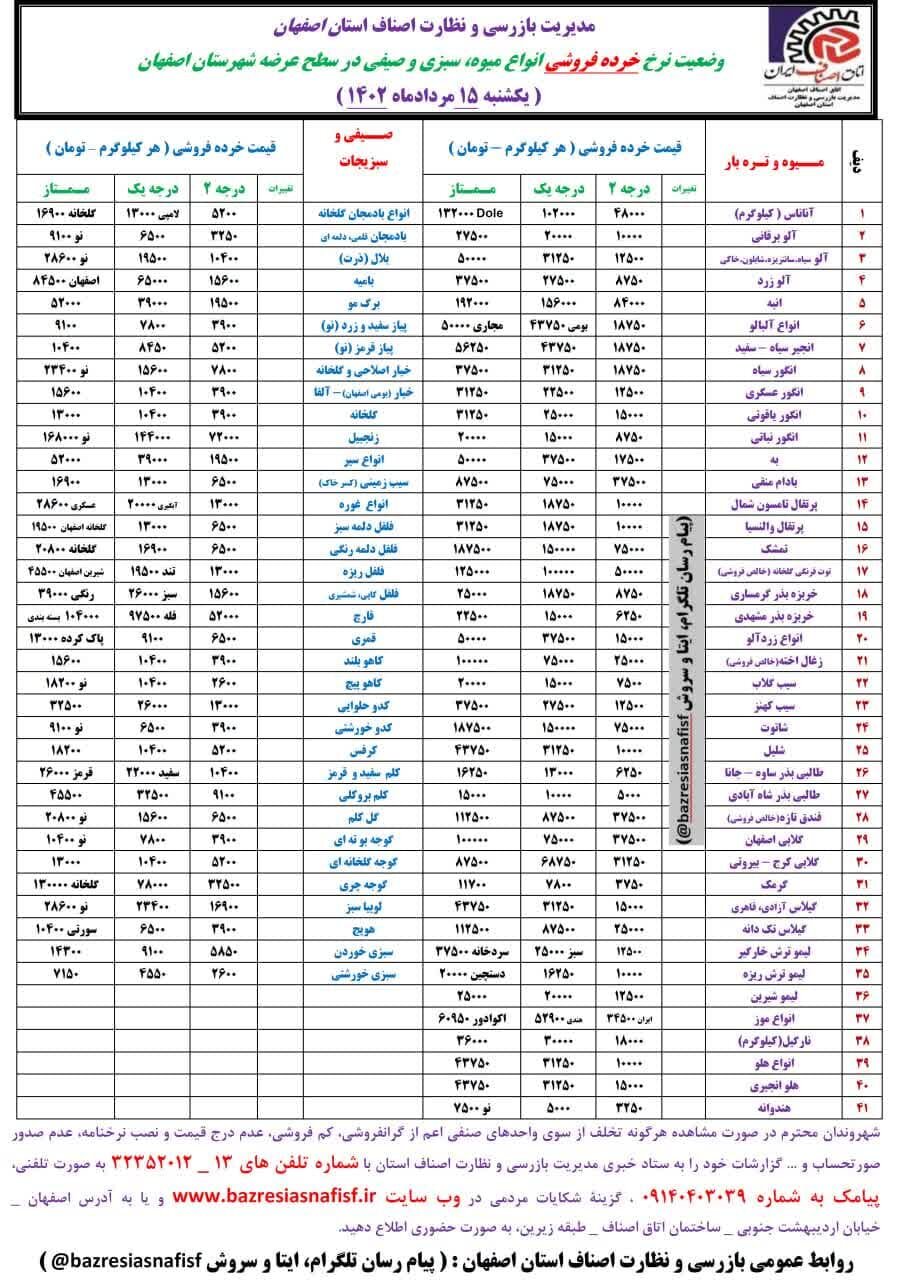 مدیریت بازرسی و نظارت اصناف استان اصفهان
وضعیت نرخ خرده فروشی انواع میوه، سبزی و صیفی در سطح عرضه شهرستان اصفهان
( یکشنبه ۱۵ مردادماه ۱۴۰۲ )
اتاق اصناف ایران
اتاق اصناف اصفهان
مدیریت بازرسی و نظارت اصناف
استان اصفهان
ردیف میوه و تره بار قیمت خرده فروشی ( هر کیلوگرم – تومان ) صیفی و سبزیجات قیمت خرده فروشی ( هر کیلوگرم – تومان )
تغییرات درجه ۲ درجه یک ممتاز تغییرات درجه ۲ درجه یک ممتاز
۱ آناناس ( کیلوگرم) ۴۸۰۰۰ ۱۰۲۰۰۰ Dole ۱۳۲۰۰۰ انواع بادمجان گلخانه ۵۲۰۰ لامپی ۱۳۰۰۰ گلخانه ۱۶۹۰۰
۲ آلو برقانی ۱۰۰۰۰ ۲۰۰۰۰ ۲۷۵۰۰ بادمجان قلمی، دلمه ای ۳۲۵۰ ۶۵۰۰ نو ۹۱۰۰
۳ آلو سیاه، سانتریزه، شابلون، خاکی ۱۲۵۰۰ ۳۱۲۵۰ ۵۰۰۰۰ بلال (ذرت) ۱۰۴۰۰ ۱۹۵۰۰ نو ۲۸۶۰۰
۴ آلو زرد ۸۷۵۰ ۲۷۵۰۰ ۳۷۵۰۰ بامیه ۱۵۶۰۰ ۶۵۰۰۰ اصفهان ۸۴۵۰۰
۵ انبه ۸۴۰۰۰ ۱۵۶۰۰۰ ۱۹۲۰۰۰ برگ مو ۱۹۵۰۰ ۳۹۰۰۰ ۵۲۰۰۰
۶ انواع آلبالو ۱۸۷۵۰ بومی ۴۳۷۵۰ مجاری ۵۰۰۰۰ پیاز سفید و زرد (نو) ۳۹۰۰ ۷۸۰۰ ۹۱۰۰
۷ انجیر سیاه – سفید ۱۸۷۵۰ ۴۳۷۵۰ ۵۶۲۵۰ پیاز قرمز (نو) ۵۲۰۰ ۸۴۵۰ ۱۰۴۰۰
۸ انگور سیاه ۱۸۷۵۰ ۳۱۲۵۰ ۳۷۵۰۰ خیار اصلاحی و گلخانه ۷۸۰۰ ۱۵۶۰۰ نو ۲۳۴۰۰
۹ انگور عسکری ۱۲۵۰۰ ۲۲۵۰۰ ۳۱۲۵۰ خیار (بومی اصفهان) – آلفا ۳۹۰۰ ۱۰۴۰۰ ۱۵۶۰۰
۱۰ انگور یاقوتی ۱۵۰۰۰ ۲۵۰۰۰ ۳۱۲۵۰ گلخانه ۳۹۰۰ ۱۰۴۰۰ ۱۳۰۰۰
۱۱ انگور نباتی ۸۷۵۰ ۱۵۰۰۰ ۲۰۰۰۰ زنجبیل ۷۲۰۰۰ ۱۴۴۰۰۰ نو ۱۶۸۰۰۰
۱۲ به ۱۷۵۰۰ ۳۷۵۰۰ ۵۰۰۰۰ انواع سیر ۱۹۵۰۰ ۳۹۰۰۰ ۵۲۰۰۰
۱۳ بادام منقی ۳۷۵۰۰ ۷۵۰۰۰ ۸۷۵۰۰ سیب زمینی (کسر خاک) ۶۵۰۰ ۱۳۰۰۰ ۱۶۹۰۰
۱۴ پرتقال تامسون شمال ۱۰۰۰۰ ۱۸۷۵۰ ۳۱۲۵۰ انواع غوره ۱۳۰۰۰ آبگیری ۲۰۰۰۰ عسکری ۲۸۶۰۰
۱۵ پرتقال والنسیا ۱۰۰۰۰ ۱۸۷۵۰ ۳۱۲۵۰ فلفل دلمه سبز ۶۵۰۰ ۱۳۰۰۰ گلخانه اصفهان ۱۹۵۰۰
۱۶ تمشک ۷۵۰۰۰ ۱۵۰۰۰۰ ۱۸۷۵۰۰ فلفل دلمه رنگی ۶۵۰۰ ۱۶۹۰۰ گلخانه ۲۰۸۰۰
۱۷ توت فرنگی گلخانه (خالص فروشی) ۵۰۰۰۰ ۱۰۰۰۰۰ ۱۲۵۰۰۰ فلفل ریزه ۱۳۰۰۰ تند ۱۹۵۰۰ شیرین اصفهان ۴۵۵۰۰
۱۸ خربزه بذر گرمساری ۸۷۵۰ ۱۸۷۵۰ ۲۵۰۰۰ فلفل کاپی، شمشیری ۱۵۶۰۰ سبز ۲۶۰۰۰ رنگی ۳۹۰۰۰
۱۹ خربزه بذر مشهدی ۶۲۵۰ ۱۵۰۰۰ ۲۲۵۰۰ قارچ ۵۲۰۰۰ فله ۹۷۵۰۰ ۱۰۴۰۰۰ بسته بندی
۲۰ انواع زردآلو ۱۵۰۰۰ ۳۷۵۰۰ ۵۰۰۰۰ قمری ۶۵۰۰ ۹۱۰۰ پاک کرده ۱۳۰۰۰
۲۱ زغال اخته(خالص فروشی) ۲۵۰۰۰ ۷۵۰۰۰ ۱۰۰۰۰۰ کاهو بلند ۳۹۰۰ ۱۰۴۰۰ ۱۵۶۰۰
۲۲ سیب گلاب ۷۵۰۰ ۱۵۰۰۰ ۲۰۰۰۰ کاهو پیچ ۲۶۰۰ ۱۰۴۰۰ نو ۱۸۲۰۰
۲۳ سیب کهنز ۱۲۵۰۰ ۲۷۵۰۰ ۳۷۵۰۰ کدو حلوایی ۱۳۰۰۰ ۲۶۰۰۰ ۳۲۵۰۰
۲۴ شاتوت ۷۵۰۰۰ ۱۵۰۰۰۰ ۱۸۷۵۰۰ کدو خورشتی ۳۹۰۰ ۶۵۰۰ نو ۹۱۰۰
۲۵ شلیل ۱۰۰۰۰ ۳۱۲۵۰ ۴۳۷۵۰ کرفس ۵۲۰۰ ۱۰۴۰۰ ۱۸۲۰۰
۲۶ طالبی بذر ساوه – جانا ۶۲۵۰ ۱۳۰۰۰ ۱۶۲۵۰ کلم سفید و قرمز ۱۰۴۰۰ سفید ۲۲۰۰۰ قرمز ۲۶۰۰۰
۲۷ طالبی بذر شاه آبادی ۵۰۰۰ ۱۰۰۰۰ ۱۵۰۰۰ کلم بروکلی ۹۱۰۰ ۳۲۵۰۰ ۴۵۵۰۰
۲۸ فندق تازه(خالص فروشی) ۳۷۵۰۰ ۸۷۵۰۰ ۱۱۲۵۰۰ گل کلم ۶۵۰۰ ۱۵۶۰۰ نو ۲۰۸۰۰
۲۹ گلابی اصفهان ۳۷۵۰۰ ۷۵۰۰۰ ۱۰۰۰۰۰ گوجه بوته ای ۳۹۰۰ ۷۸۰۰ نو ۱۰۴۰۰
۳۰ گلابی کرج – بیروتی ۳۱۲۵۰ ۶۸۷۵۰ ۸۷۵۰۰ گوجه گلخانه ای ۵۲۰۰ ۱۰۴۰۰ ۱۳۰۰۰
۳۱ گرمک ۳۷۵۰ ۷۸۰۰ ۱۱۷۰۰ گوجه چری ۳۲۵۰۰ ۷۸۰۰۰ گلخانه ۱۳۰۰۰۰
۳۲ گیلاس آزادی، قاهری ۱۵۰۰۰ ۳۱۲۵۰ ۴۳۷۵۰ لوبیا سبز ۱۶۹۰۰ ۲۳۴۰۰ نو ۲۸۶۰۰
۳۳ گیلاس تک دانه ۲۵۰۰۰ ۸۷۵۰۰ ۱۱۲۵۰۰ هویج ۳۹۰۰ ۶۵۰۰ سورتی ۱۰۴۰۰
۳۴ لیمو ترش خارگیر ۱۲۵۰۰ سبز ۲۵۰۰۰ سردخانه ۳۷۵۰۰ سبزی خوردن ۵۸۵۰ ۹۱۰۰ ۱۴۳۰۰
۳۵ لیمو ترش ریزه ۱۰۰۰۰ ۱۶۲۵۰ دستچین ۲۰۰۰۰ سبزی خورشتی ۲۶۰۰ ۴۵۵۰ ۷۱۵۰
۳۶ لیمو شیرین ۱۲۵۰۰ ۲۰۰۰۰ ۲۵۰۰۰
۳۷ انواع موز ایران ۳۴۵۰۰ هندی ۵۲۹۰۰ اکوادور ۶۰۹۵۰
۳۸ نارگیل(کیلوگرم) ۱۸۰۰۰ ۳۰۰۰۰ ۳۶۰۰۰
۳۹ انواع هلو ۱۰۰۰۰ ۳۱۲۵۰ ۴۳۷۵۰
۴۰ هلو انجیری ۱۵۰۰۰ ۳۱۲۵۰ ۴۳۷۵۰
۴۱ هندوانه ۳۲۵۰ ۵۰۰۰ نو ۷۵۰۰
(پیام رسان تلگرام، ایتا و سروش bazresiasnafisf@)
شهروندان محترم در صورت مشاهده هرگونه تخلف از سوی واحدهای صنفی اعم از گرانفروشی، کم فروشی، عدم درج قیمت و نصب نرخنامه، عدم صدور
صورتحساب و ... گزارشات خود را به ستاد خبری مدیریت بازرسی و نظارت اصناف استان با شماره تلفن های ۱۳ _ ۳۲۳۵۲۰۱۲ به صورت تلفنی،
پیامک به شماره ۰۹۱۴۰۴۰۳۰۳۹ ، گزینۀ شکایات مردمی در وب سایت www.bazresiasnafisf.ir و یا به آدرس اصفهان _
خیابان اردیبهشت جنوبی _ ساختمان اتاق اصناف _ طبقه زیرین، به صورت حضوری اطلاع دهید.
روابط عمومی بازرسی و نظارت اصناف استان اصفهان : ( پیام رسان تلگرام، ایتا و سروش bazresiasnafisf@ )